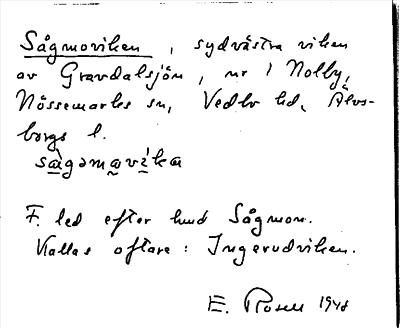 Sågmoviken, sydvästra viken
av Gravdalsjön, nr 1 Nolby,
Nössemarks sn, Vedbo hd, Älvs-
borgs l.
sågəmavika
F. led efter hmd Sågmon.
Kallas oftare: Ingerudviken.
E. Rosell 1948